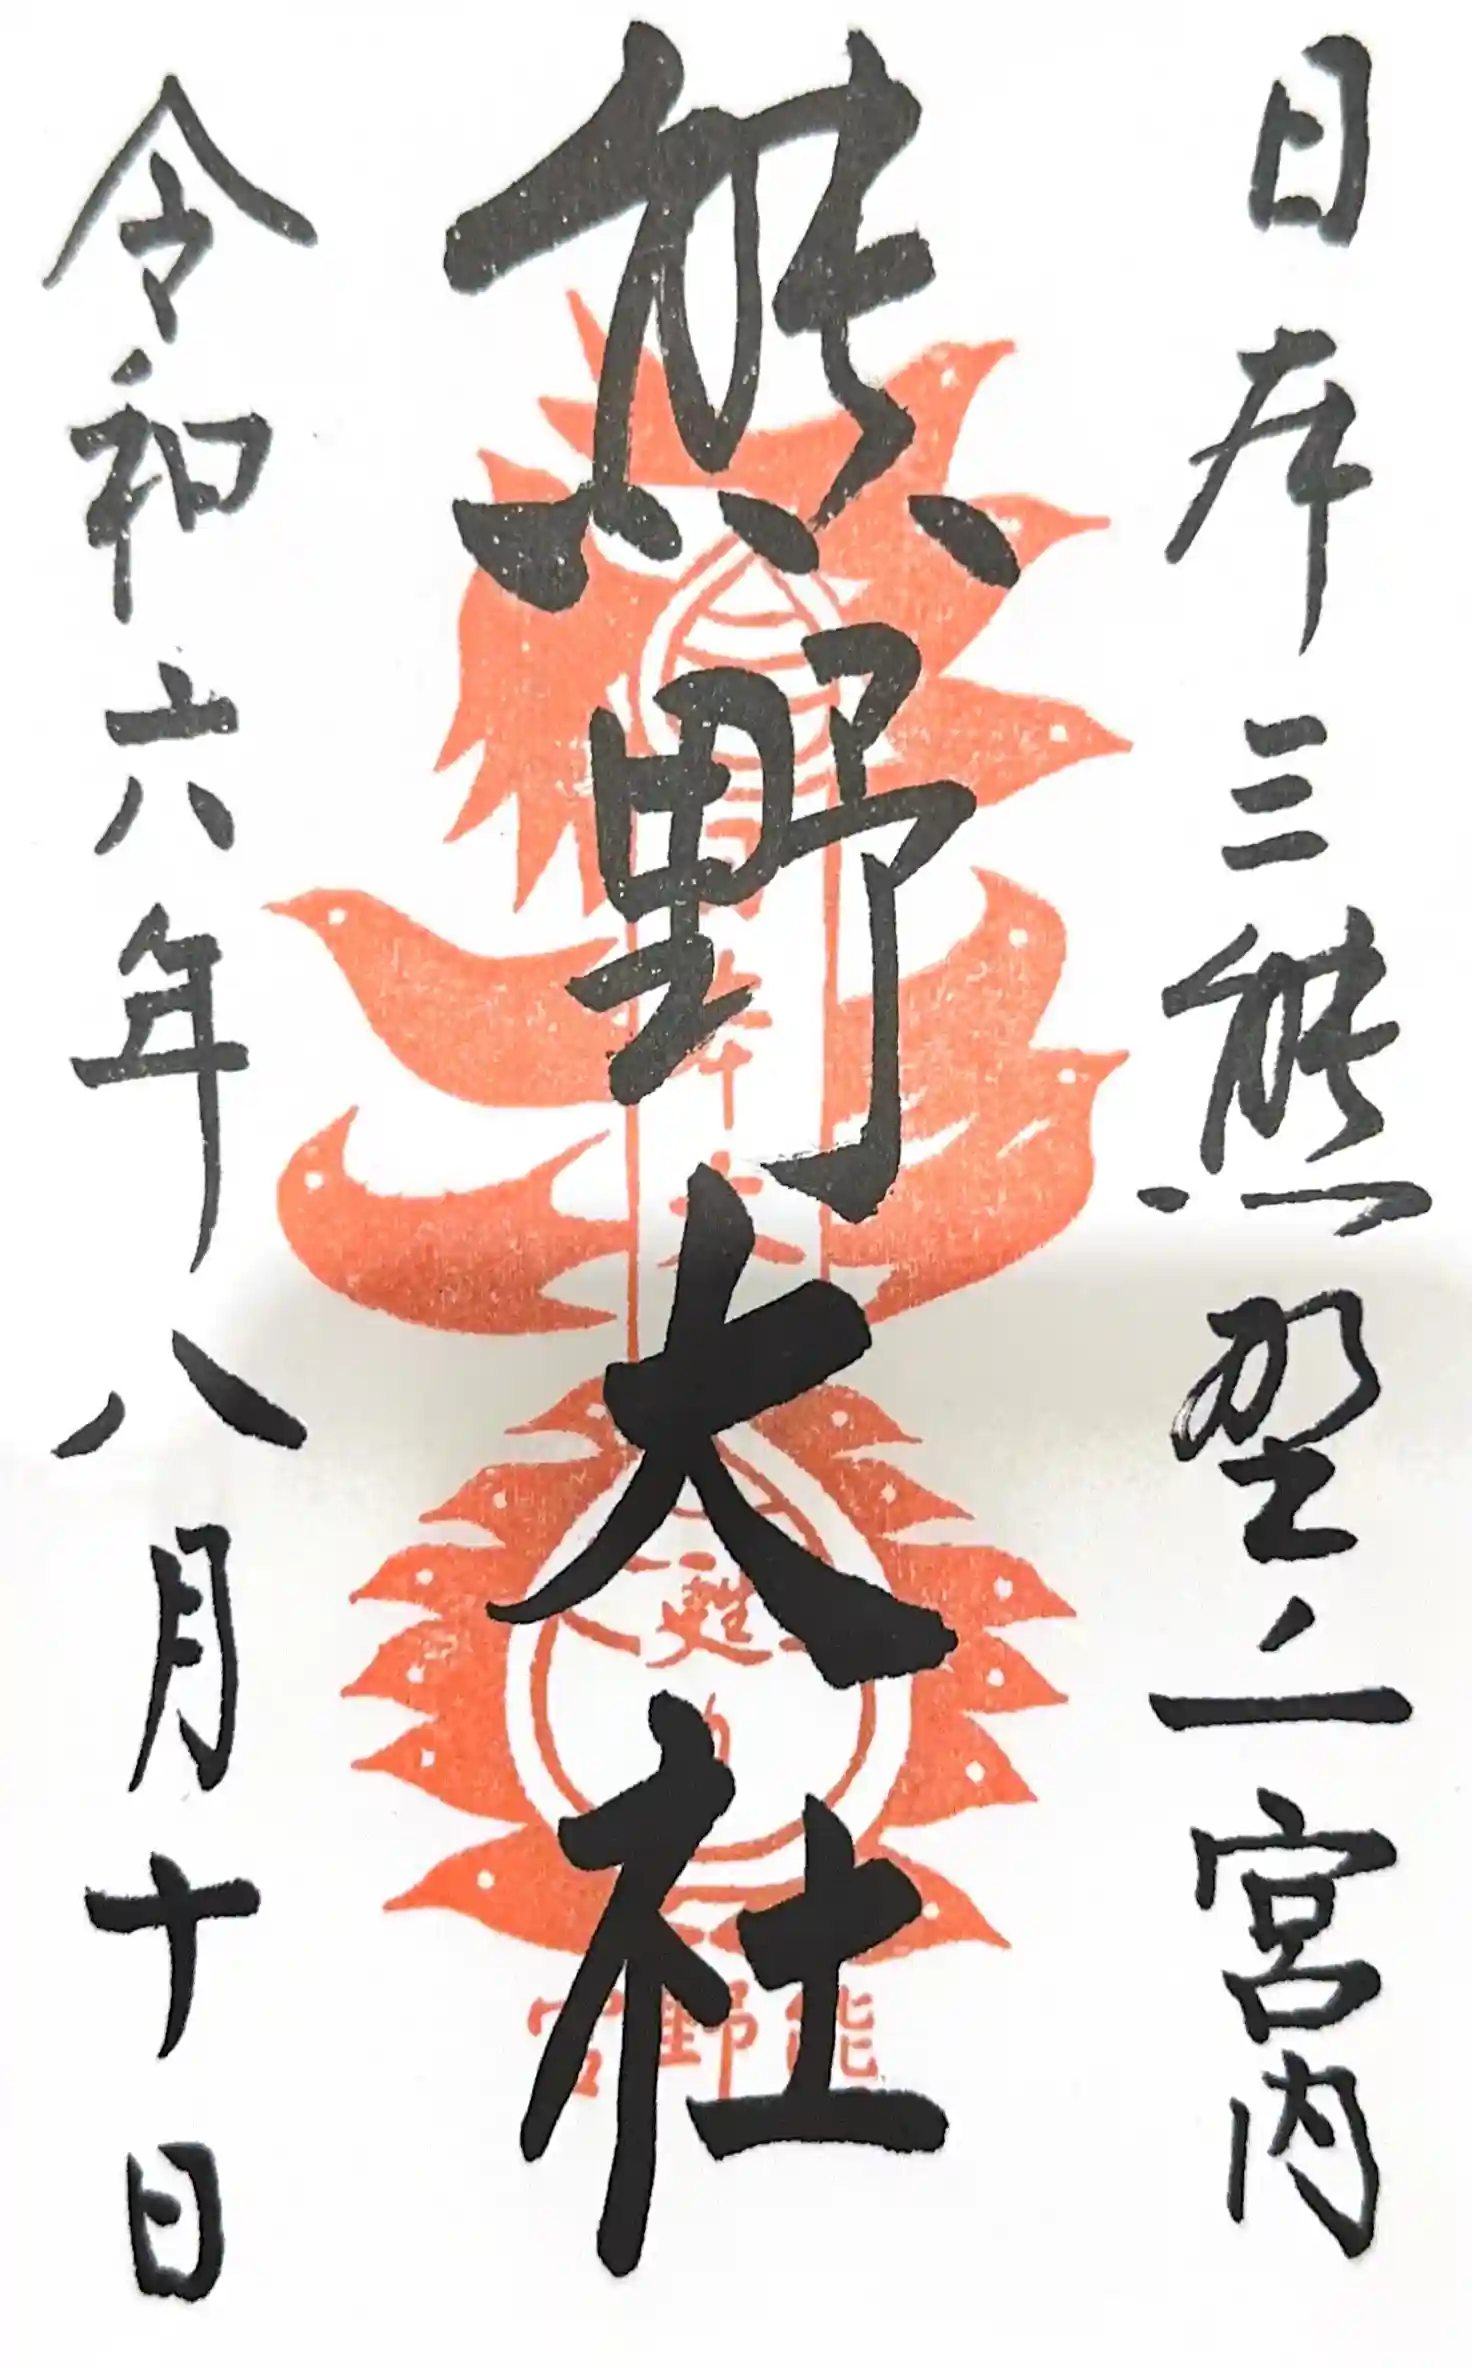 日本三熊野之一宮内
熊野大社
令和六年八月十日
甦
熊野宮